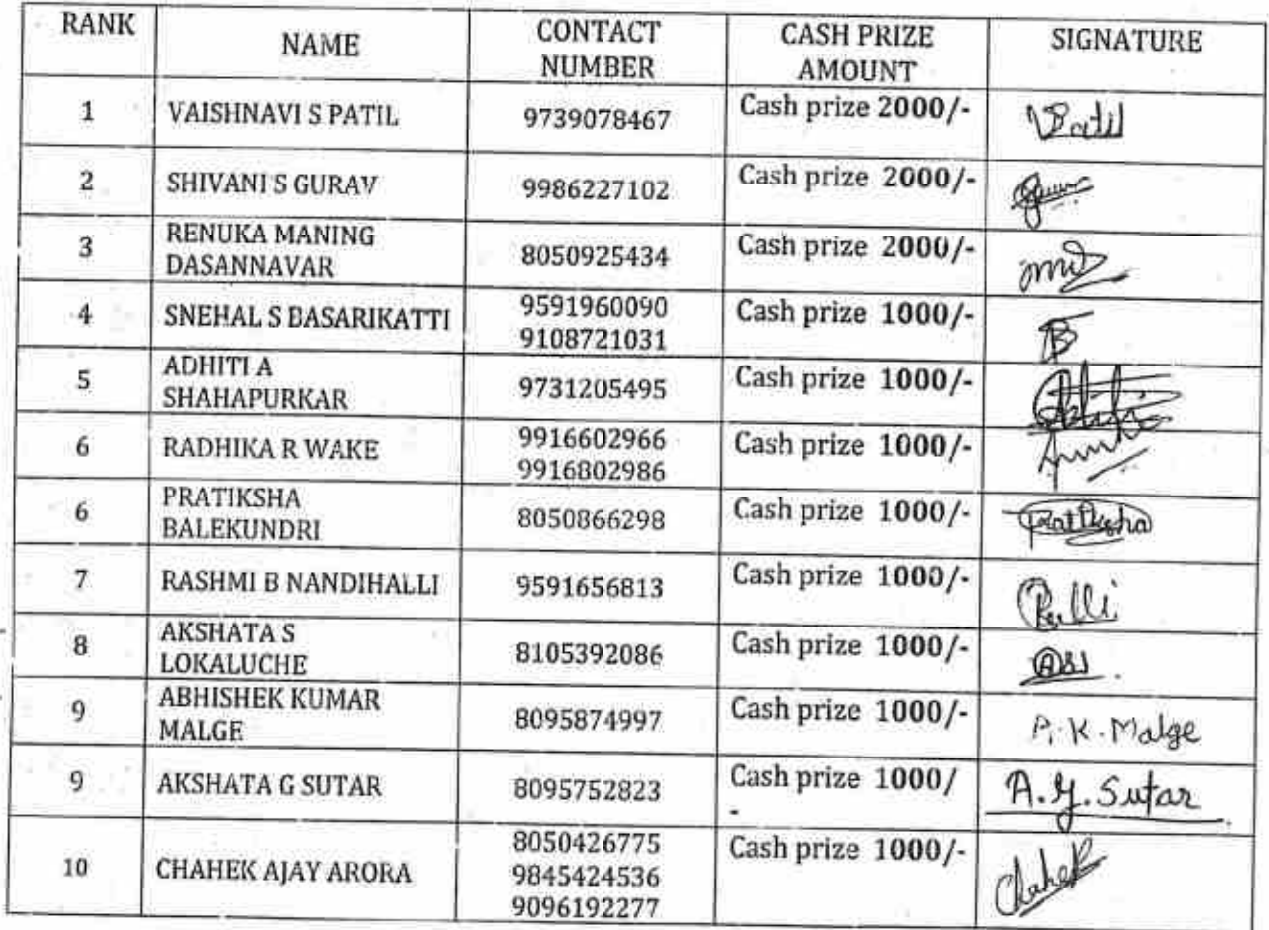 RANK NAME CONTACT NUMBER CASH PRIZE AMOUNT SIGNATURE
1 VAISHNAVI S PATIL 9739078467 Cash prize 2000/- VPatil
2 SHIVANI S GURAV 9986227102 Cash prize 2000/-
3 RENUKA MANING DASANNAVAR 8050925434 Cash prize 2000/-
4 SNEHAL S BASARIKATTI 9591960090 9108721031 Cash prize 1000/-
5 ADHITI A SHAHAPURKAR 9731205495 Cash prize 1000/-
6 RADHIKA R WAKE 9916602966 9916802986 Cash prize 1000/-
6 PRATIKSHA BALEKUNDRI 8050866298 Cash prize 1000/- Pratiksha
7 RASHMI B NANDIHALLI 9591656813 Cash prize 1000/-
8 AKSHATA S LOKALUCHE 8105392086 Cash prize 1000/-
9 ABHISHEK KUMAR MALGE 8095874997 Cash prize 1000/- A.K.Malge
9 AKSHATA G SUTAR 8095752823 Cash prize 1000/- A.G.Sutar
10 CHAHEK AJAY ARORA 8050426775 9845424536 9096192277 Cash prize 1000/- Chahek